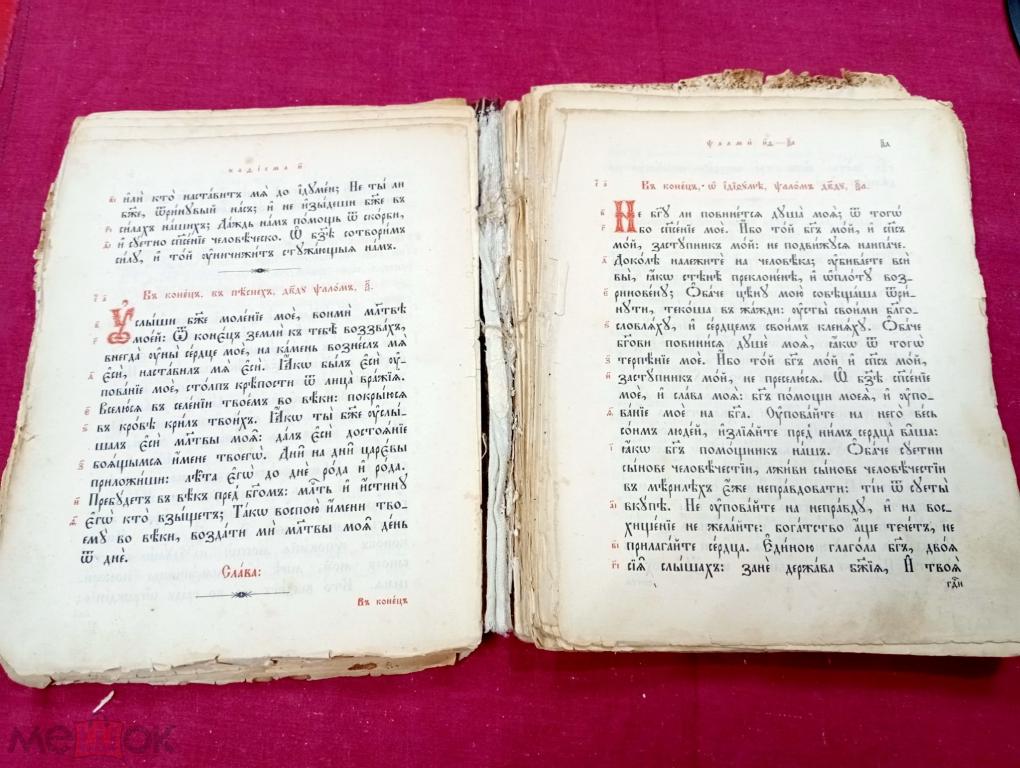 каѳісма и҃
и҆лѝ кто̀ наста́витъ мѧ̀ до і҆дꙋме́и; Не ты́ ли
бж҃е, ѿри́нꙋвый на́съ; и҆ не и҆зы́деши бж҃е въ
си́лахъ на́шихъ; Да́ждь на́мъ по́мощь ѿ ско́рби,
и҆ сꙋ́етно сп҃се́нїе человѣ́ческо. Ѡ бз҃ѣ сотвори́мъ
си́лꙋ, и҆ то́й ᲂу҆ничижи́тъ стꙋжа́ющыѧ на́мъ.
Въ коне́цъ, въ пѣ́снехъ, дв҃дꙋ ѱало́мъ, ѯ҃.
Оу҆слы́ши бж҃е моле́нїе моѐ, вонмѝ мл҃твѣ
мое́й: Ѿ коне́цъ землѝ къ тебѣ̀ воззва́хъ,
внегда̀ ᲂу҆ны̀ се́рдце моѐ, на ка́мень возне́слъ мѧ̀
є҆сѝ, наста́вилъ мѧ̀ є҆сѝ. Ꙗ҆́кѡ бы́лъ є҆сѝ ᲂу҆-
пова́нїе моѐ, сто́лпъ крѣ́пости ѿ лица̀ вра́жїѧ.
Вселю́сѧ въ селе́нїи твое́мъ во вѣ́ки: покры́юсѧ
въ кро́вѣ кри́лъ твои́хъ. Ꙗ҆́кѡ ты̀ бж҃е ᲂу҆слы́-
шалъ є҆сѝ мл҃твы моѧ̑: да́лъ є҆сѝ достоѧ́нїе
боѧ́щымсѧ и҆́мене твоегѡ̀. Дни̑ на дни̑ царє́вы
приложи́ши: лѣ̑та є҆гѡ̀ до днѐ ро́да и҆ ро́да.
Пребꙋ́детъ въ вѣ́къ пред̾ бг҃омъ: мл҃ть и҆ и҆́стинꙋ
є҆гѡ̀ кто̀ взы́щетъ; Та́кѡ воспою̀ и҆́мени тво-
емꙋ̀ во вѣ́ки, возда́ти мѝ мл҃твы моѧ̑ де́нь
ѿ днѐ.
Сла́ва:
Въ коне́цъ
ѱалмы̀ н҃д — ѯ҃а
Въ коне́цъ, ѡ҆ і҆діѳꙋ́мѣ, ѱало́мъ дв҃дꙋ, ѯ҃а.
Не бг҃ꙋ ли повине́тсѧ дꙋша̀ моѧ̀; ѿ тогѡ̀
бо сп҃се́нїе моѐ. И҆́бо то́й бг҃ъ мо́й, и҆ сп҃съ
мо́й, застꙋ́пникъ мо́й: не подви́жꙋсѧ наипа́че.
Доко́лѣ належитѐ на человѣ́ка; ᲂу҆бива́ете всѝ
вы̀, ꙗ҆́кѡ стѣнѣ̀ преклоне́нѣ, и҆ ѡ҆пло́тꙋ воз-
ринове́нꙋ; Ѻ҆ба́че цѣ́нꙋ мою̀ совѣща́ша ѿри́-
нꙋти, теко́ша въ жа́жди: ᲂу҆сты̀ свои́ми бл҃го-
словлѧ́хꙋ, и҆ се́рдцемъ свои́мъ кленѧ́хꙋ. Ѻ҆ба́че
бг҃ови повини́сѧ дꙋшѐ моѧ̀, ꙗ҆́кѡ ѿ тогѡ̀
терпѣ́нїе моѐ. И҆́бо то́й бг҃ъ мо́й и҆ сп҃съ мо́й,
застꙋ́пникъ мо́й, не преселю́сѧ. Ѡ бз҃ѣ сп҃се́нїе
моѐ, и҆ сла́ва моѧ̀: бг҃ъ по́мощи моеѧ̀, и҆ ᲂу҆по-
ва́нїе моѐ на бг҃а. Оу҆пова́йте на него̀ ве́сь
со́нмъ люде́й, и҆злїѧ́йте пред̾ ни́мъ сердца̀ ва̑ша:
ꙗ҆́кѡ бг҃ъ помо́щникъ на́шъ. Ѻ҆ба́че сꙋ́етни
сы́нове человѣ́честїи, лжи́ви сы́нове человѣ́честїи
въ мѣ́рилѣхъ є҆́же непра́вдовати: ті́и ѿ сꙋеты̀
вкꙋ́пѣ. Не ᲂу҆пова́йте на непра́вдꙋ, и҆ на вос-
хище́нїе не жела́йте: бога́тство а҆́ще тече́тъ, не
прилага́йте се́рдца. Є҆ди́ною глаго́ла бг҃ъ, двоѧ̀
сїѧ̑ слы́шахъ: занѐ держа́ва бж҃їѧ, И҆ твоѧ̀
гдⷭ҇и
мешок